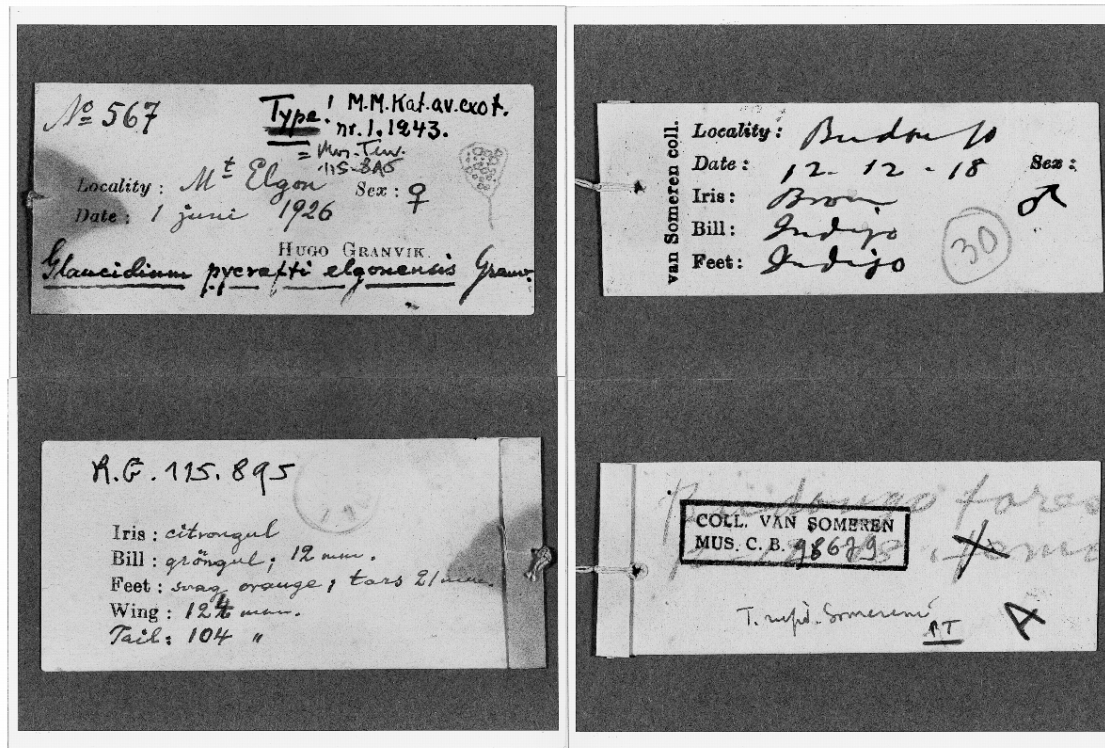 Nº 567
Type! M.M. Kat. av. exot.
nr. 1. 1943.
= Mus. Terv.
115-895
Locality: Mt Elgon Sex: ♀
Date: 1 juni 1926
HUGO GRANVIK.
Glaucidium pycrafti elgonensis Granv.
R.G. 115.895
Iris: citrongul
Bill: gröngul; 12 mm.
Feet: svag orange; tars 21 mm.
Wing: 124 mm.
Tail: 104 "
van Someren coll.
Locality: Budongo
Date: 12-12-18 Sex: ♂
Iris: Brown
Bill: Indigo
Feet: Indigo
30
Budongo fores
COLL. VAN SOMEREN
MUS. C. B. 98679
T. rufid. Somereni
♂T
A